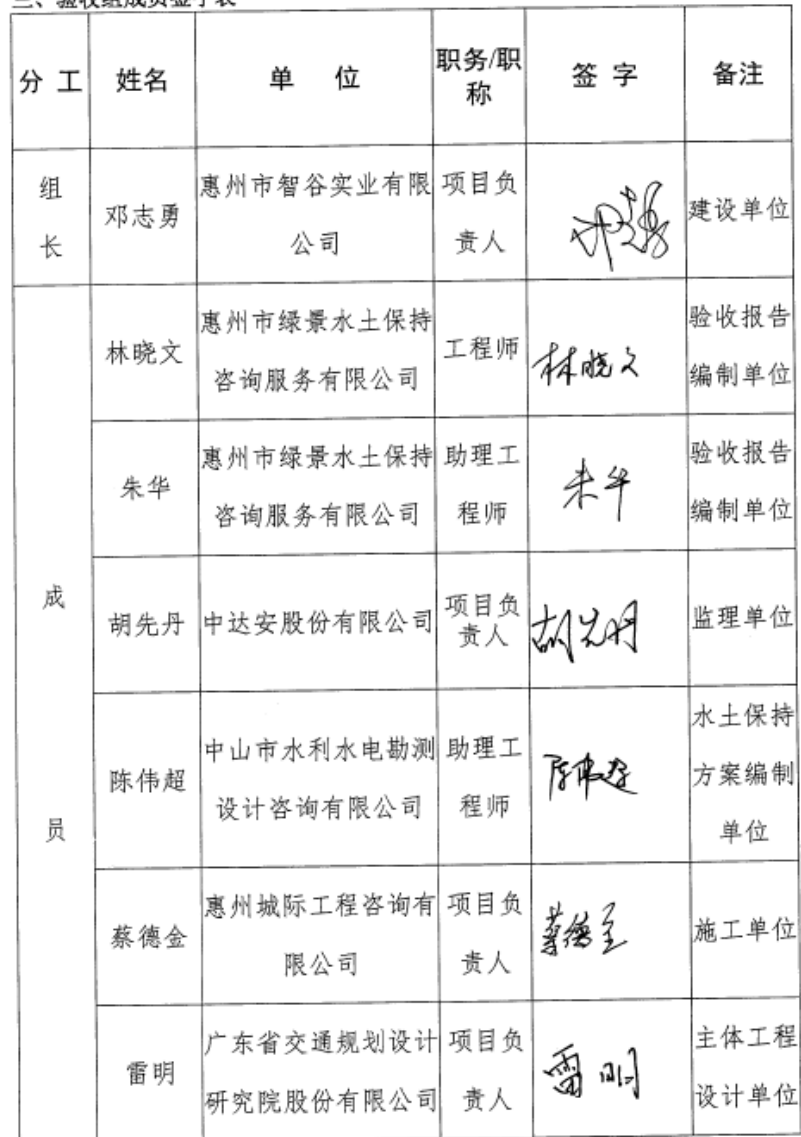 三、验收组成员签字表
分 工 姓名 单 位 职务/职称 签 字 备注
组长 邓志勇 惠州市智谷实业有限公司 项目负责人 建设单位
成员
林晓文 惠州市绿景水土保持咨询服务有限公司 工程师 林晓文 验收报告编制单位
朱华 惠州市绿景水土保持咨询服务有限公司 助理工程师 朱华 验收报告编制单位
胡先丹 中达安股份有限公司 项目负责人 胡先丹 监理单位
陈伟超 中山市水利水电勘测设计咨询有限公司 助理工程师 陈伟超 水土保持方案编制单位
蔡德金 惠州城际工程咨询有限公司 项目负责人 蔡德金 施工单位
雷明 广东省交通规划设计研究院股份有限公司 项目负责人 雷明 主体工程设计单位